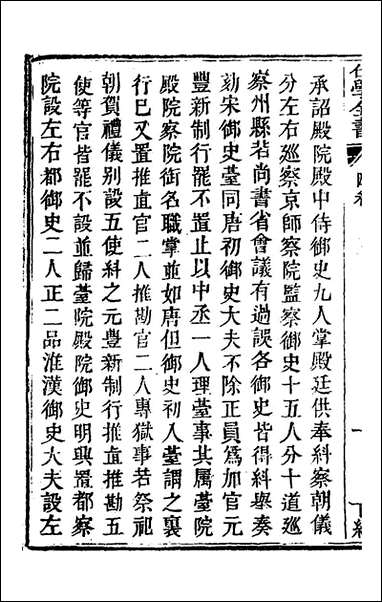 仕學全書
承詔殿院殿中侍御史九人掌殿廷供奉糾察朝儀
分左右廵察京師察院監察御史十五人分十道廵
察州縣若尚書省會議有過誤各御史皆得糾舉奏
劾宋御史臺同唐初御史大夫不除正員爲加官元
豐新制行罷不置止以中丞一人理臺事其属臺院
殿院察院銜名職掌並如唐但御史初入臺謂之裏
行巳又置推直官二人推勘官二人專獄事若祭祀
朝賀禮儀别設五使糾之元豐新制行推直推勘五
使等官皆罷不設並歸臺院殿院御史明興置都察
院設左右都御史二人正二品准漢御史大夫設左